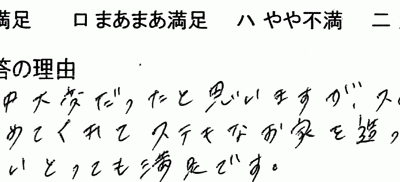 満足 ロ まあまあ満足 ハ やや不満 ニ
答の理由
中大変だったと思いますが、ス
めてくれてステキなお家を造っ
いとっても満足です。